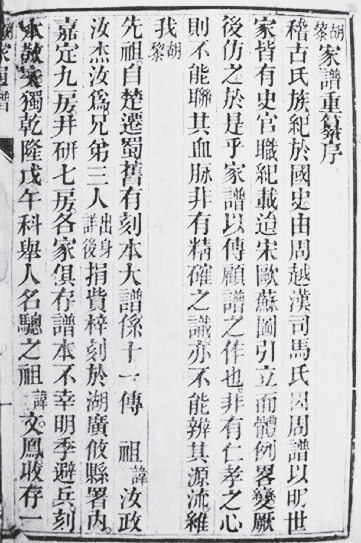 胡黎家譜重纂序
稽古氏族紀於國史由周越漢司馬氏因周譜以明世
家皆有史官職紀載迨宋歐蘇圖引立而體例畧變厥
後仿之於是乎家譜以傳顧譜之作也非有仁孝之心
則不能聯其血脉非有精確之識亦不能辨其源流維
我胡黎
先祖自楚遷蜀舊有刻本大譜係十一傳 祖諱汝政
汝杰汝爲兄弟三人出身詳後捐貲梓刻於湖廣攸縣署內
嘉定九房井研七房各家俱存譜本不幸明季避兵刻
本散失獨乾隆戊午科舉人名驄之祖諱文鳳收存一